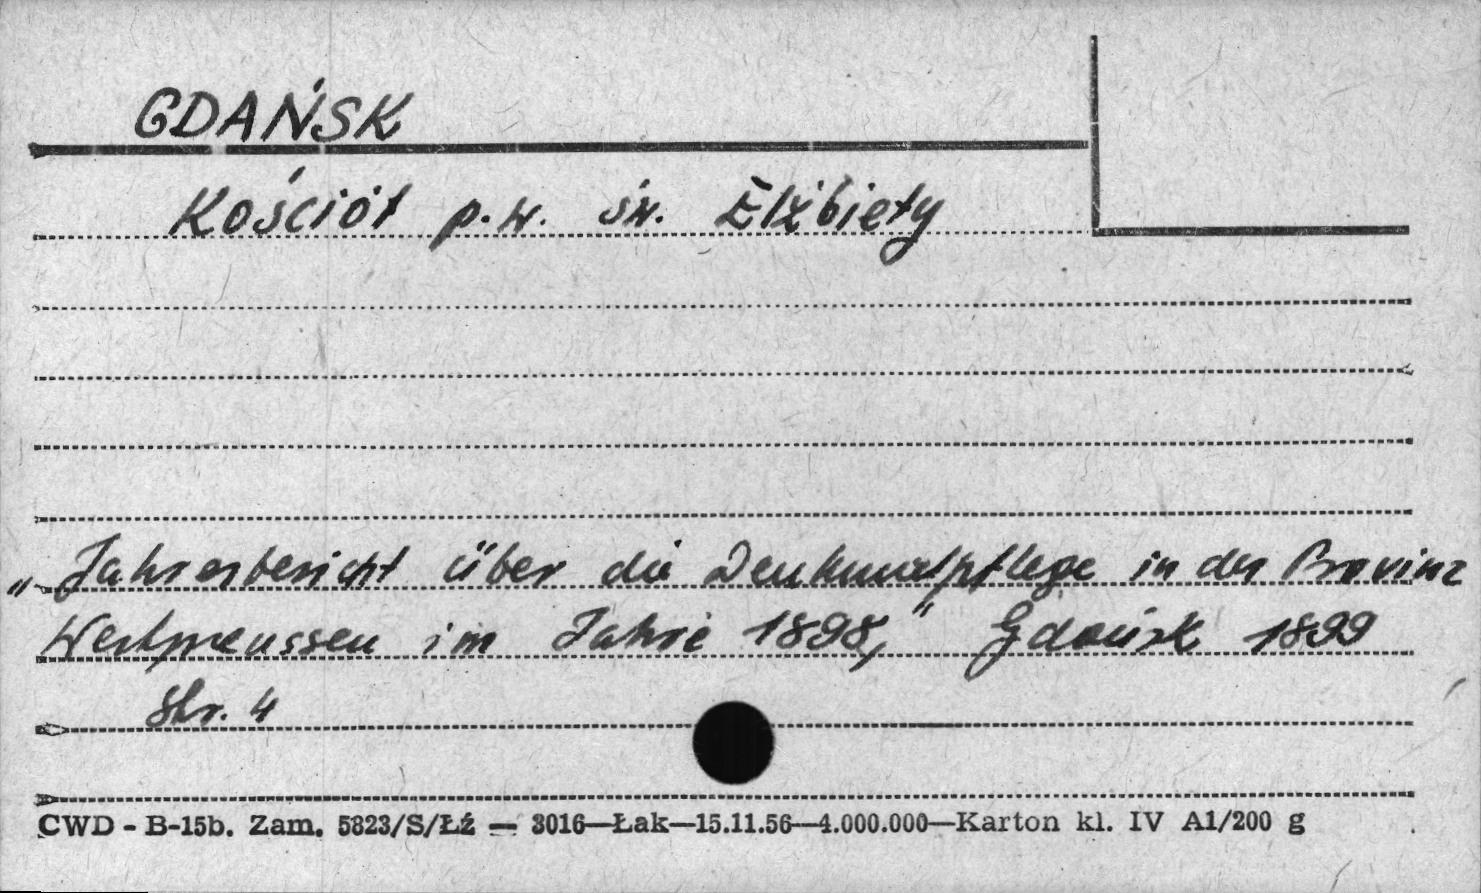 GDAŃSK
Kościół p.w. św. Elżbiety
„Jahresbericht über die Denkmalpflege in der Provinz
Westpreussen im Jahre 1898," Gdańsk 1899
Str. 4
CWD - B-15b. Zam. 5823/S/Łź — 3016—Łak—15.11.56—4.000.000—Karton kl. IV A1/200 g